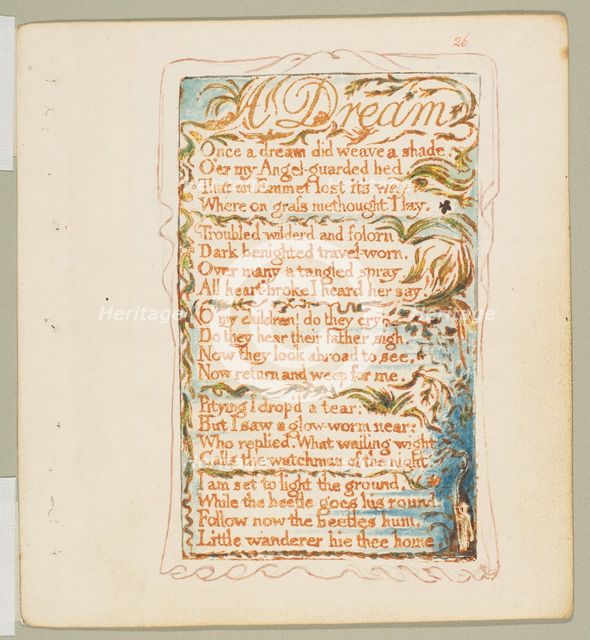 26
A Dream
Once a dream did weave a shade,
O'er my Angel-guarded bed,
That an Emmet lost it's way
Where on grass methought I lay.
Troubled wilderd and folorn
Dark benighted travel-worn,
Over many a tangled spray
All heart-broke I heard her say.
O my children! do they cry,
Do they hear their father sigh.
Now they look abroad to see,
Now return and weep for me.
Pitying I drop'd a tear:
But I saw a glow-worm near:
Who replied. What wailing wight
Calls the watchman of the night.
I am set to light the ground,
While the beetle goes his round:
Follow now the beetles hum,
Little wanderer hie thee home.
Heritage Heritage